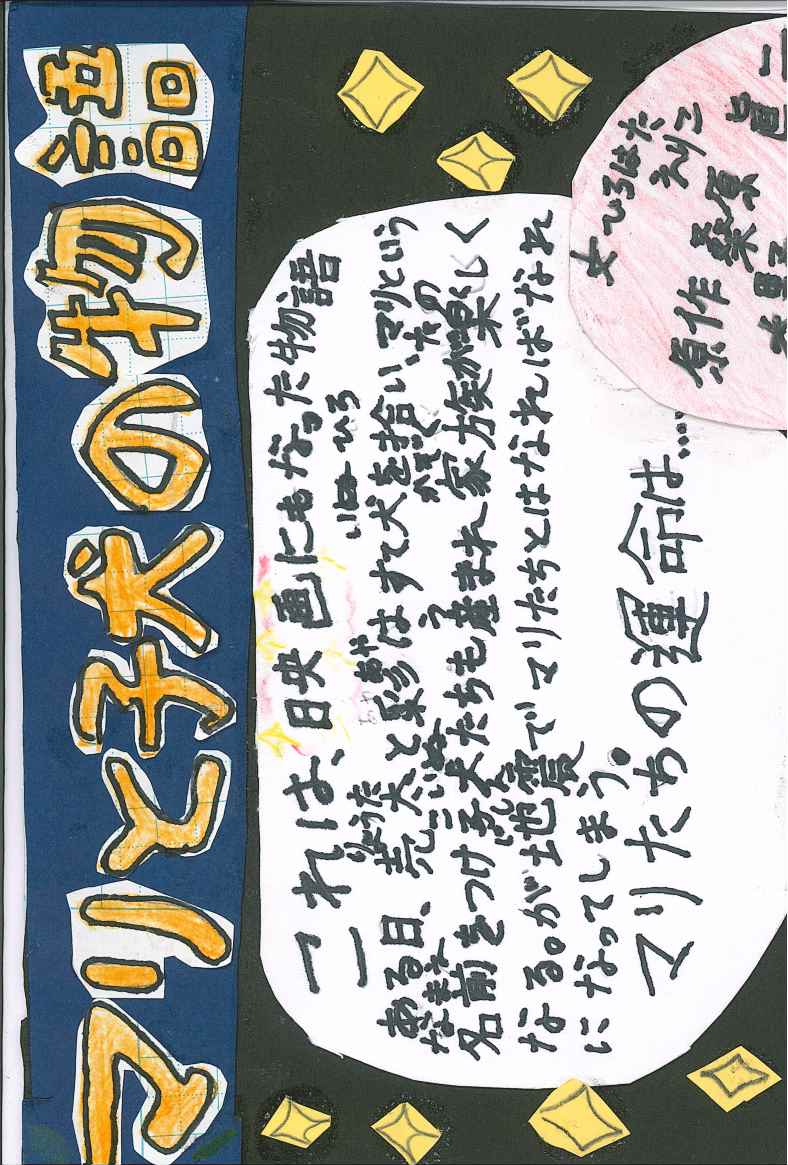 マリと子犬の物語
これは、映画にもなった物語
ある日、亮太と彩はすて犬を拾い、マリという
名前をつけ子犬たちも産まれ家族が楽しく
なる。が地震でマリたちとはなればなれ
になってしまう。
マリたちの運命は…
文ひろはた
えりこ
原作 桑原 眞二